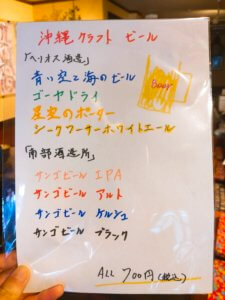 沖縄クラフト ビール
「ヘリオス酒造」
青い空と海のビール
ゴーヤドライ
星空のポーター
シークワーサーホワイトエール
Beer
「南部酒造所」
サンゴビール IPA
サンゴビール アルト
サンゴビール ケルシュ
サンゴビール ブラック
ALL 700円(税込)